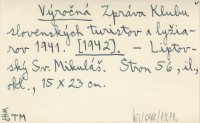 Výročná Zpráva Klubu
slovenských turistov a lyžia-
rov 1941. [1942]. - Liptov-
ský Sv. Mikuláš. Stron 56, il.,
okl., 15 x 23 cm.
TM